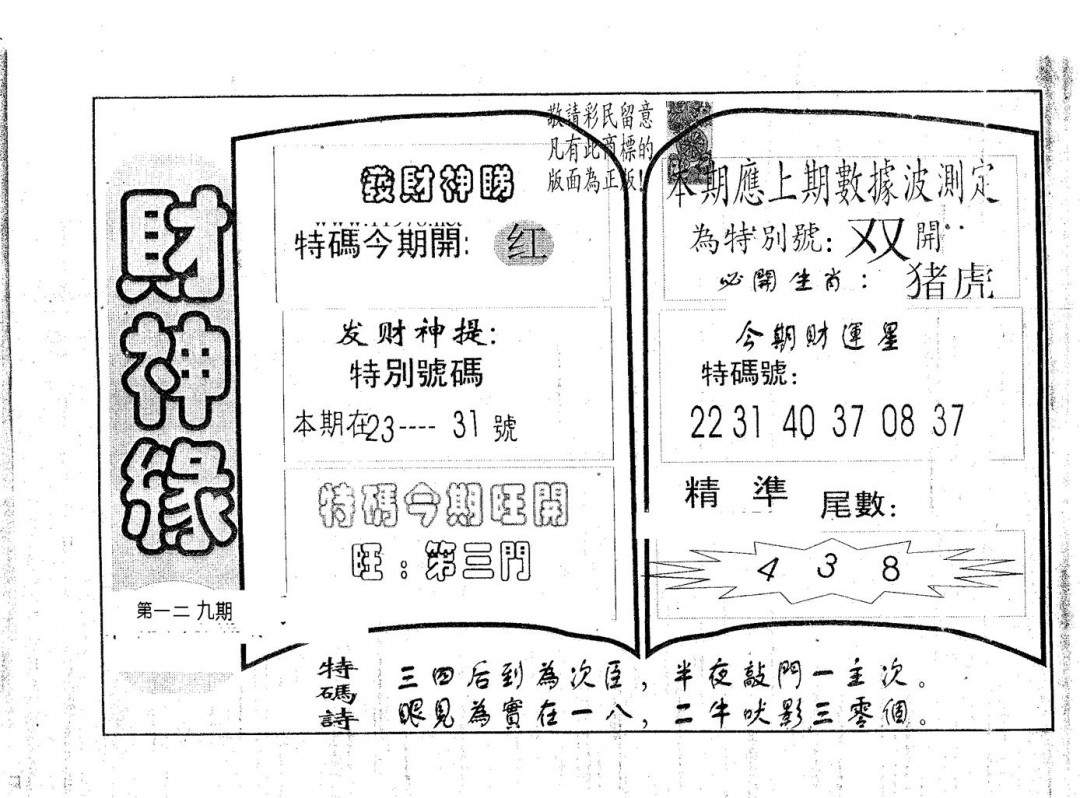 財神緣
第一二九期
敬請彩民留意
凡有此商標的
版面為正版!
發財神睇
特碼今期開: 红
发财神提:
特別號碼
本期在23----31號
特碼今期旺開
旺:第三門
本期應上期數據波測定
為特別號:双開
必開生肖:猪虎
今期財運星
特碼號:
22 31 40 37 08 37
精準 尾數:
4 3 8
特碼詩
三四后到為次臣,半夜敲門一主次。
眼見為實在一八,二牛吠影三零個。